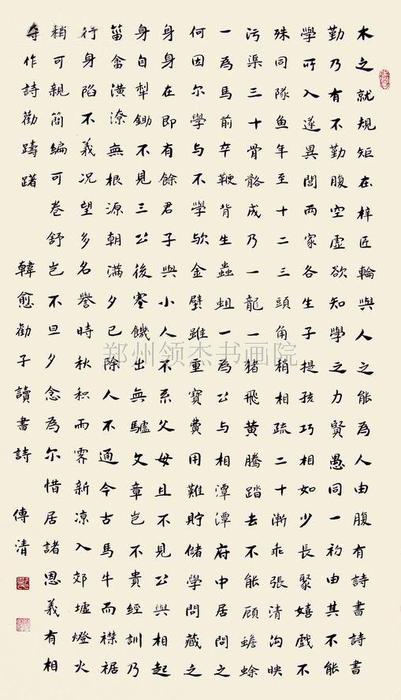 木之就規矩在梓匠輪與人之能為人由腹有詩書詩書
勤乃有不勤腹空虛欲知學之力賢愚同一初由其不能
學所入遂異閭兩家各生子提孩巧相如少長聚嬉戲不
殊同隊魚年至十二三頭角稍相疏二十漸乖張清溝映
污渠三十骨骼成乃一龍一猪飛黃騰踏去不能顧蟾蜍
一為馬前卒鞭背生蟲蛆一為公與相潭潭府中居問之
何因尔學與不學欤金璧雖重寶費用難貯儲學問藏之
身身在即有餘君子與小人不系父母且不見公與相起
身自犁鋤不見三公後寒饑出無驢文章豈不貴經訓乃
菑畬潢潦無根源朝滿夕已除人不通今古馬牛而襟裾
行身陷不義況望多名譽時秋積雨霽新涼入郊墟燈火
稍可親簡編可卷舒豈不旦夕念為尔惜居諸恩義有相
奪作詩勸躊躇
韓愈勸子讀書詩 傳清
郑州领杰书画院